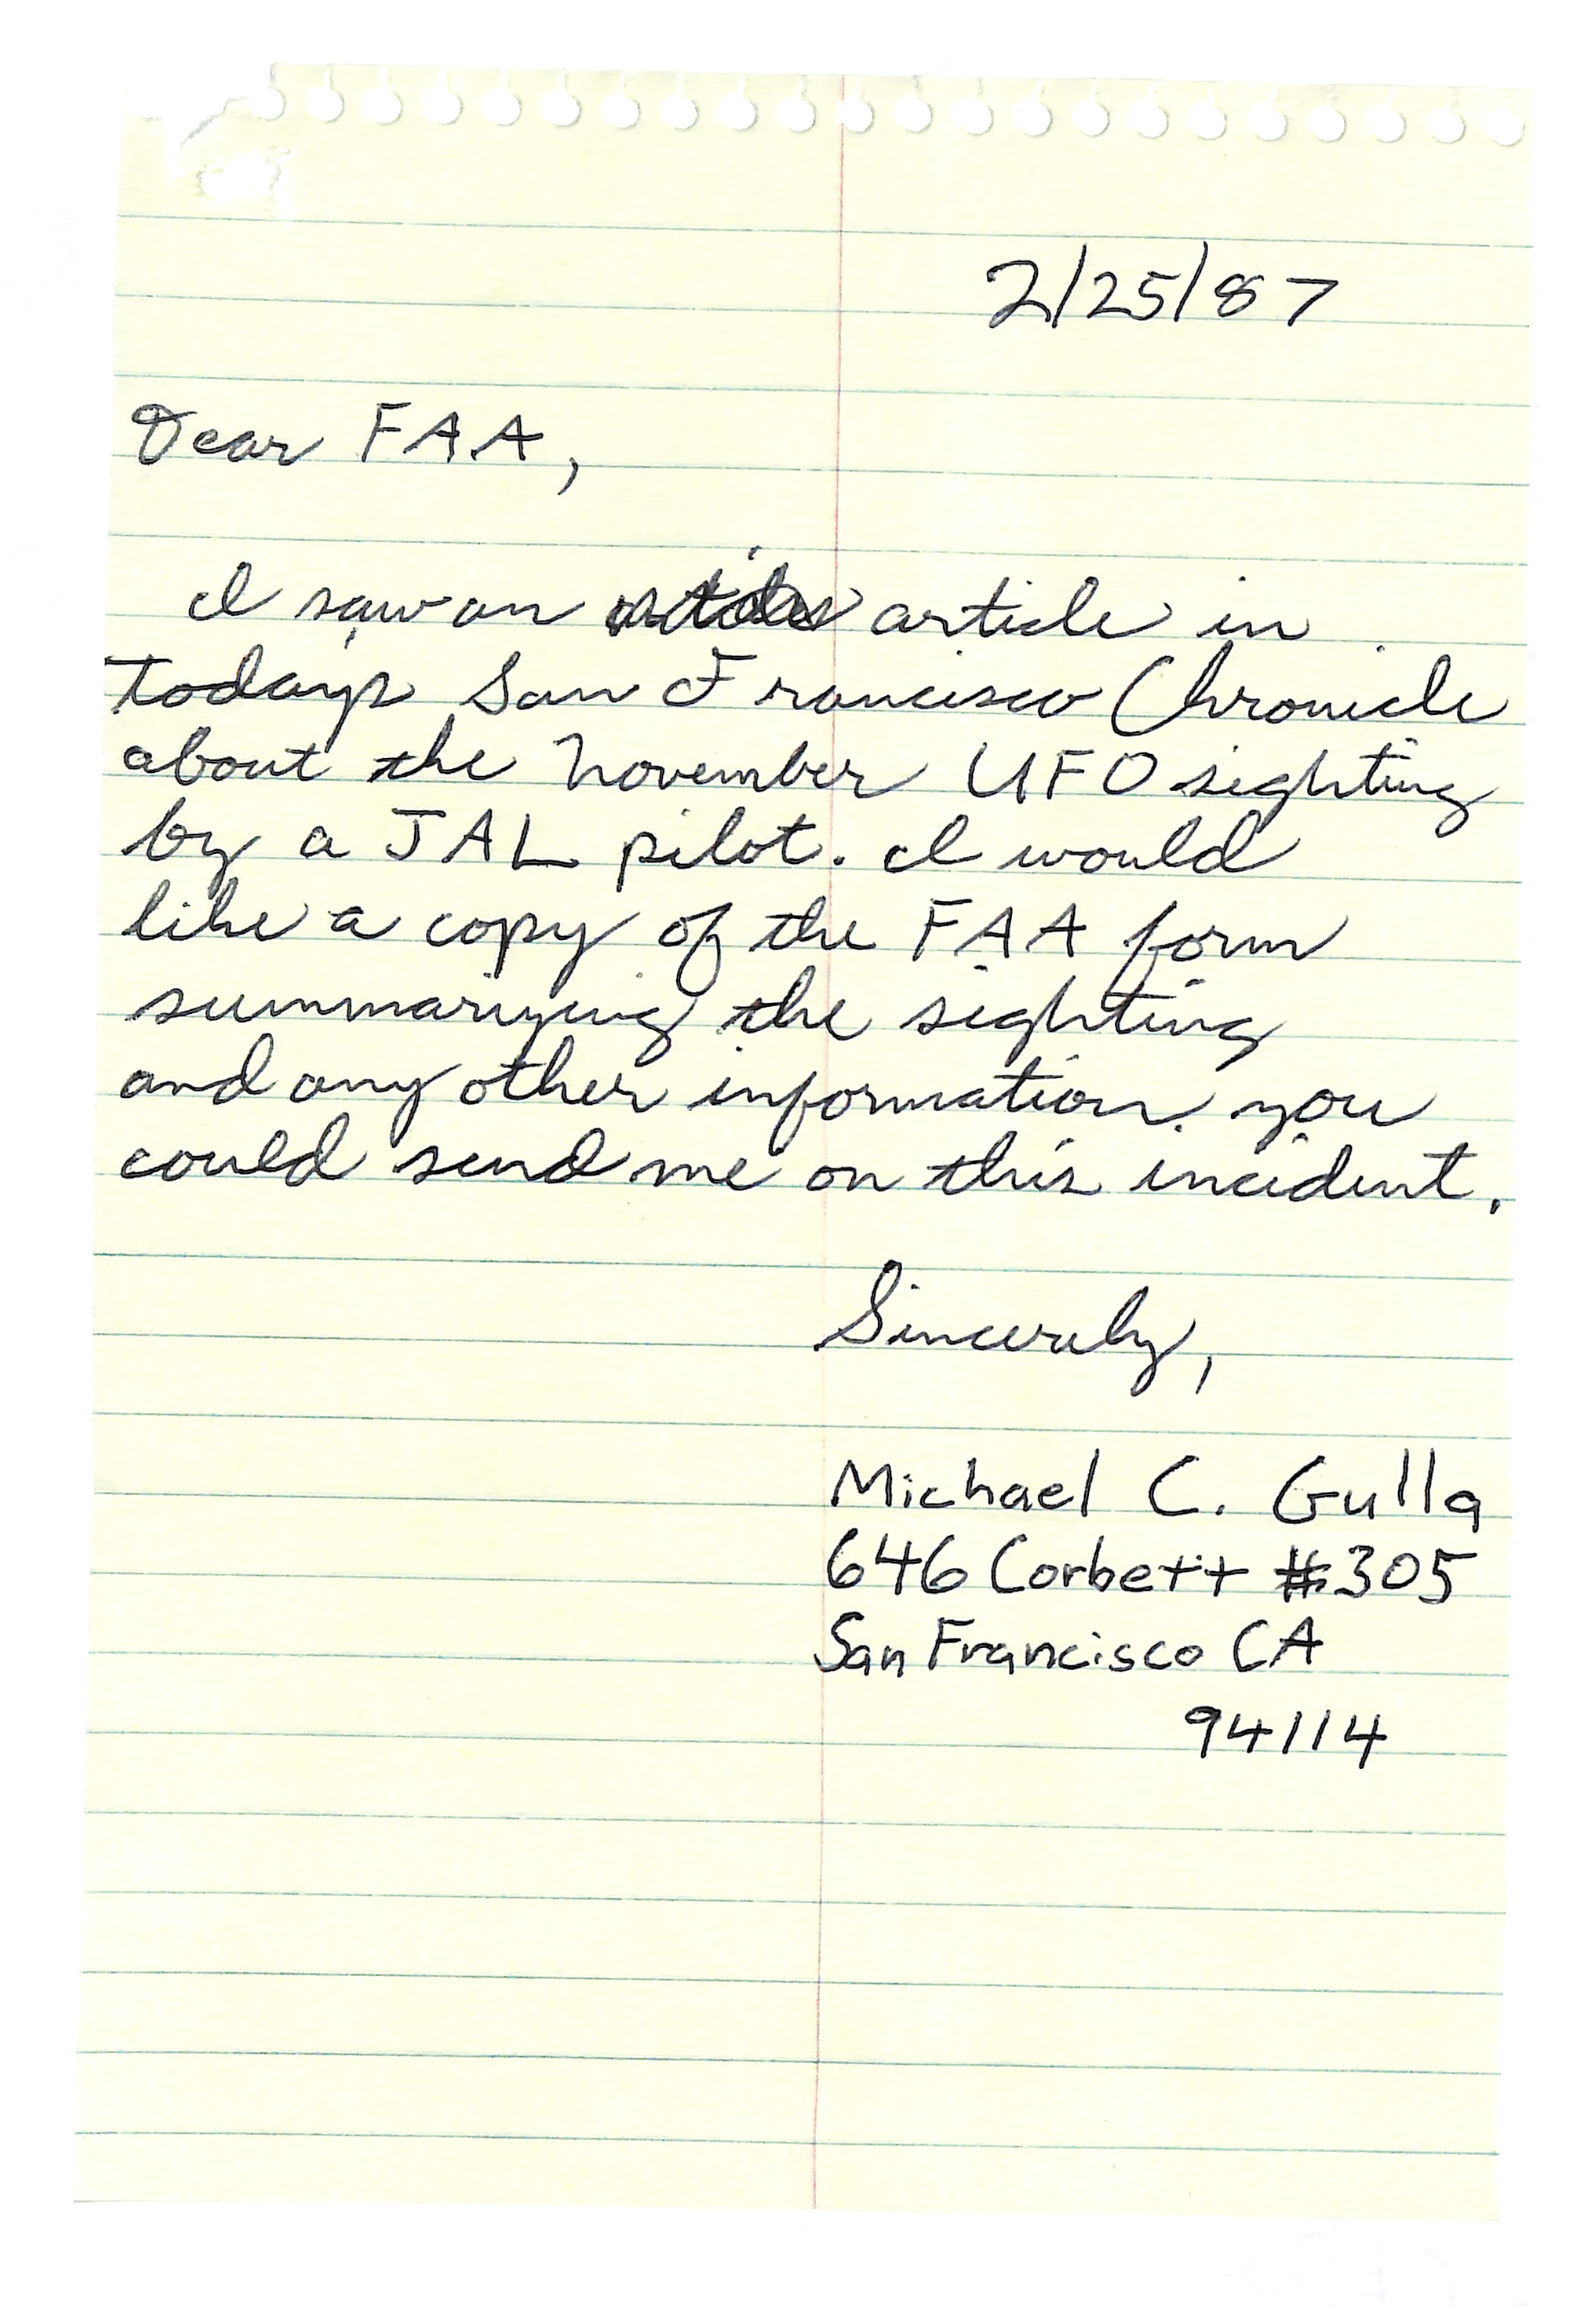 2/25/87
Dear FAA,
I saw an article in
todays San Francisco Chronicle
about the November UFO sighting
by a JAL pilot. I would
like a copy of the FAA form
summarizing the sighting
and any other information you
could send me on this incident.
Sincerely,
Michael C. Gulla
646 Corbett #305
San Francisco CA
94114